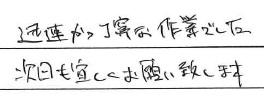 迅速かつ丁寧な作業でした
次回も宜しくお願い致します